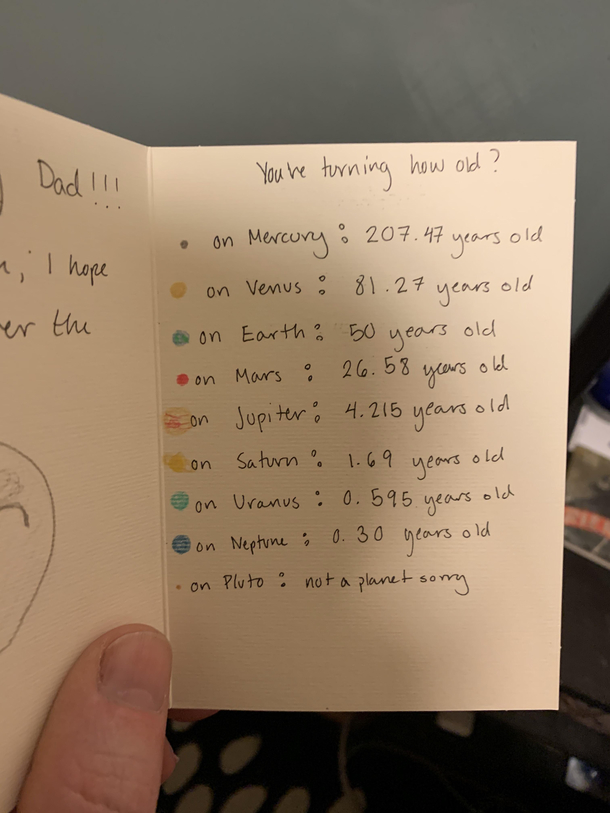 Dad!!!
, I hope
er the
You're turning how old?
on Mercury: 207.47 years old
on Venus: 81.27 years old
on Earth: 50 years old
on Mars: 26.58 years old
on Jupiter: 4.215 years old
on Saturn: 1.69 years old
on Uranus: 0.595 years old
on Neptune: 0.30 years old
on Pluto: not a planet sorry